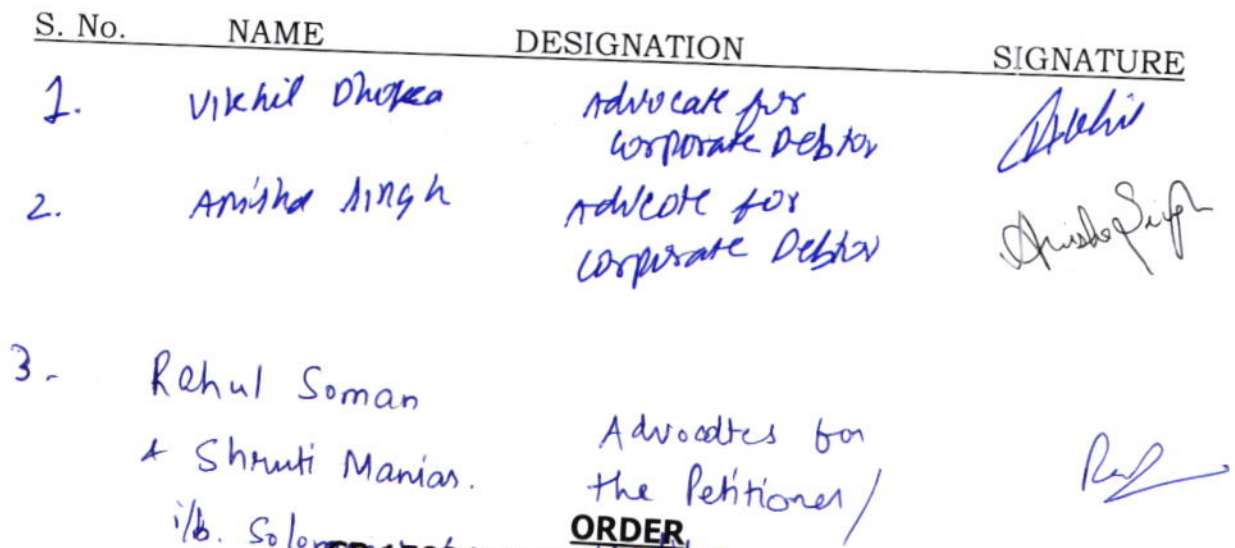 S. No. NAME DESIGNATION SIGNATURE
1. Vikhil Dhoka Advocate for
Corporate Debtor
2. Anisha Singh Advcote for
Corporate Debtor
Anisha Singh
3- Rahul Soman Advocates for
& Shruti Maniar. the Petitioner/
i/b.
ORDER